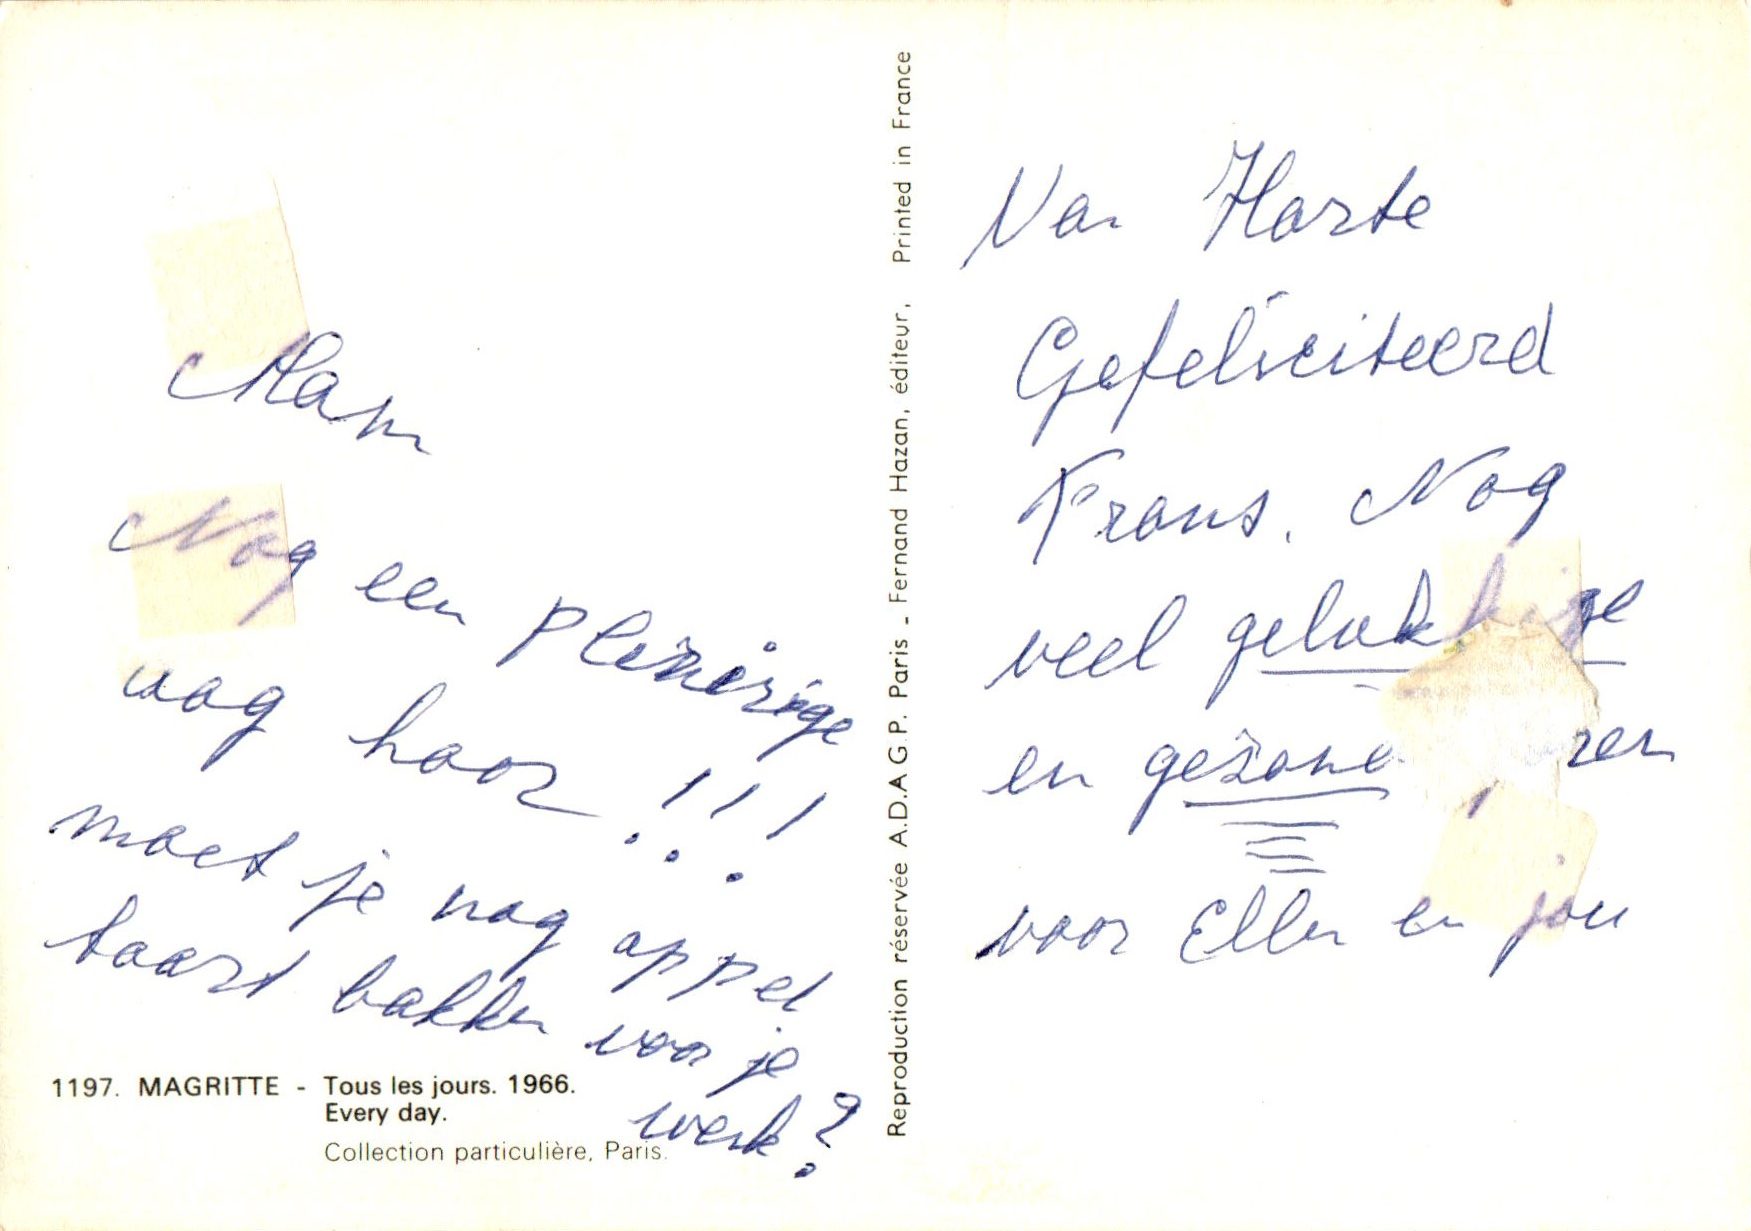 Mam
Nog een pleizierige
dag hoor!!!
moet je nog appel
taart bakken voor je
werk?
1197. MAGRITTE - Tous les jours. 1966.
Every day.
Collection particulière, Paris.
Reproduction réservée A.D.A.G.P. Paris - Fernand Hazan, éditeur, Printed in France
Van Harte
Gefeliciteerd
Frans. Nog
veel gelukkige
en gezonde jaren
voor Ellen en jou